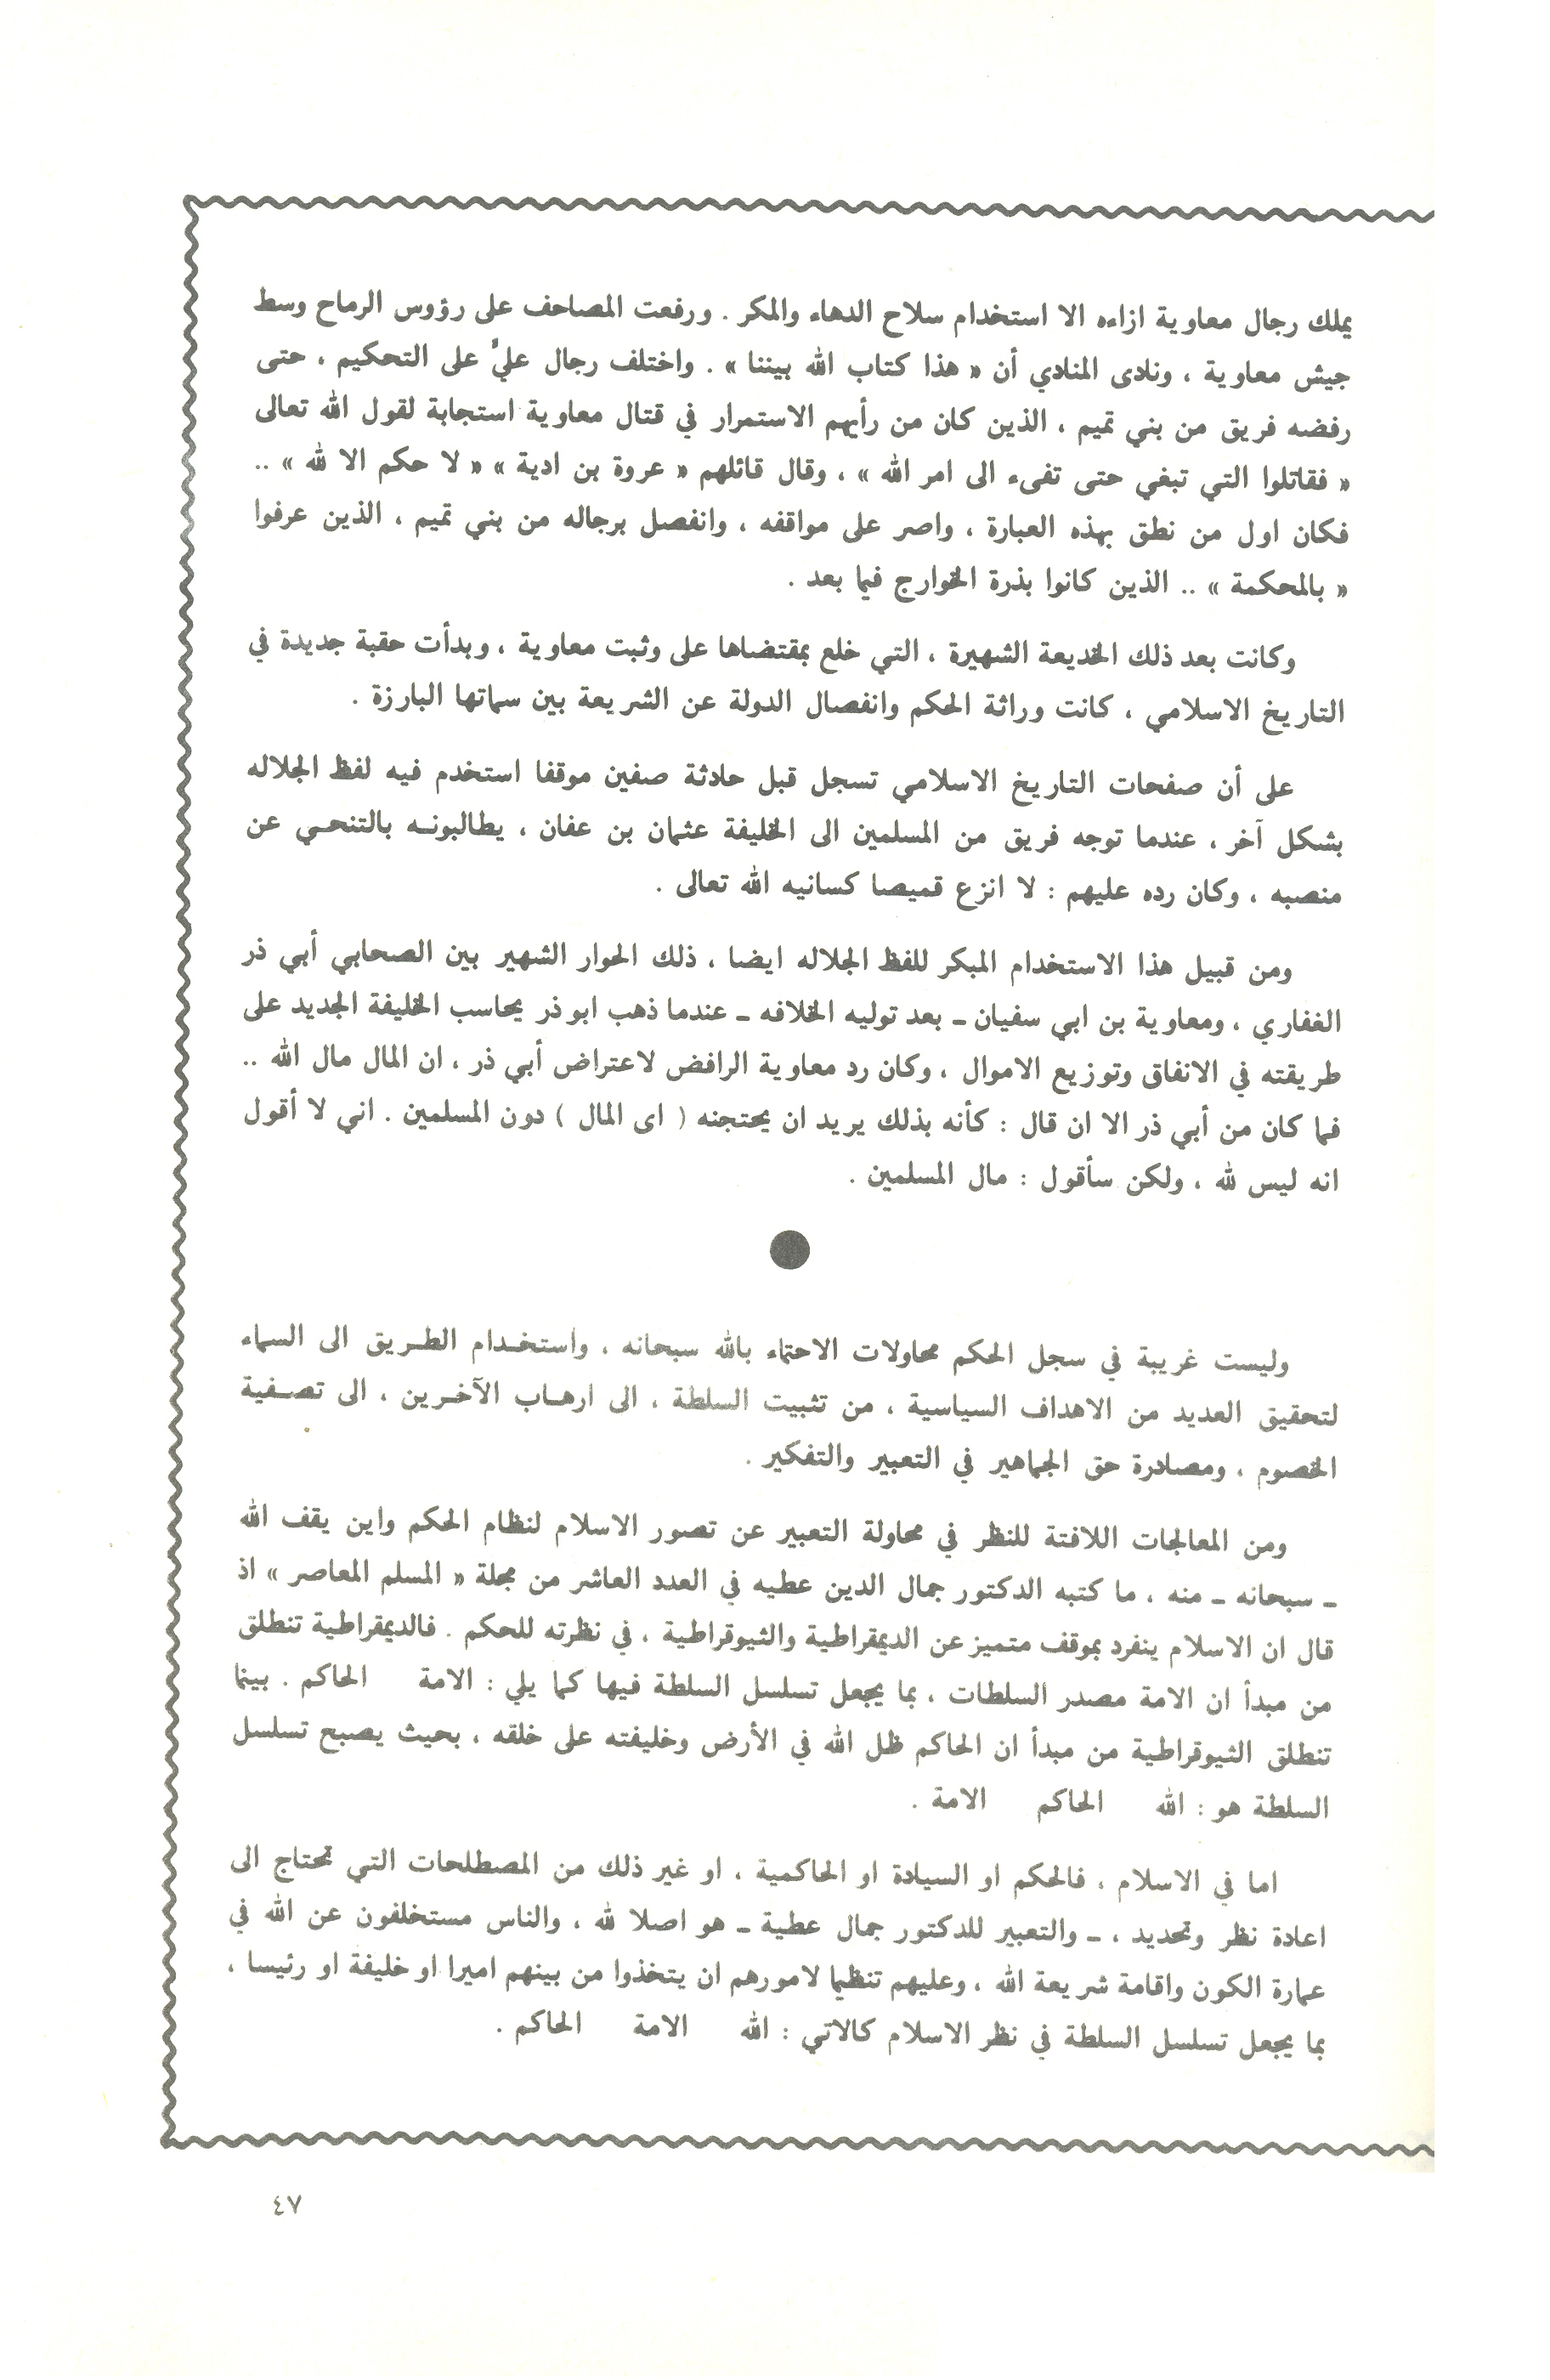 يملك رجال معاوية ازاءه الا استخدام سلاح الدهاء والمكر . ورفعت المصاحف على رؤوس الرماح وسط
جيش معاوية ، ونادى المنادي أن « هذا كتاب الله بيننا » . واختلف رجال عليٍّ على التحكيم ، حتى
رفضه فريق من بني تميم ، الذين كان من رأيهم الاستمرار في قتال معاوية استجابة لقول الله تعالى
« فقاتلوا التي تبغي حتى تفىء الى امر الله » ، وقال قائلهم « عروة بن ادية » « لا حكم الا لله » ..
فكان اول من نطق بهذه العبارة ، واصر على مواقفه ، وانفصل برجاله من بني تميم ، الذين عرفوا
« بالمحكمة » .. الذين كانوا بذرة الخوارج فيما بعد .
وكانت بعد ذلك الخديعة الشهيرة ، التي خلع بمقتضاها على وثبت معاوية ، وبدأت حقبة جديدة في
التاريخ الاسلامي ، كانت وراثة الحكم وانفصال الدولة عن الشريعة بين سماتها البارزة .
على أن صفحات التاريخ الاسلامي تسجل قبل حادثة صفين موقفا استخدم فيه لفظ الجلاله
بشكل آخر ، عندما توجه فريق من المسلمين الى الخليفة عثمان بن عفان ، يطالبونه بالتنحي عن
منصبه ، وكان رده عليهم : لا انزع قميصا كسانيه الله تعالى .
ومن قبيل هذا الاستخدام المبكر للفظ الجلاله ايضا ، ذلك الحوار الشهير بين الصحابي أبي ذر
الغفاري ، ومعاوية بن ابي سفيان ـ بعد توليه الخلافه ـ عندما ذهب ابو ذر يحاسب الخليفة الجديد على
طريقته في الانفاق وتوزيع الاموال ، وكان رد معاوية الرافض لاعتراض أبي ذر ، ان المال مال الله ..
فما كان من أبي ذر الا ان قال : كأنه بذلك يريد ان يحتجنه ( اى المال ) دون المسلمين . اني لا أقول
انه ليس لله ، ولكن سأقول : مال المسلمين .
وليست غريبة في سجل الحكم محاولات الاحتماء بالله سبحانه ، واستخدام الطريق الى السماء
لتحقيق العديد من الاهداف السياسية ، من تثبيت السلطة ، الى ارهاب الآخرين ، الى تصفية
الخصوم ، ومصادرة حق الجماهير في التعبير والتفكير .
ومن المعالجات اللافتة للنظر في محاولة التعبير عن تصور الاسلام لنظام الحكم واين يقف الله
ـ سبحانه ـ منه ، ما كتبه الدكتور جمال الدين عطيه في العدد العاشر من مجلة « المسلم المعاصر » اذ
قال ان الاسلام ينفرد بموقف متميز عن الديمقراطية والثيوقراطية ، في نظرته للحكم . فالديمقراطية تنطلق
من مبدأ ان الامة مصدر السلطات ، بما يجعل تسلسل السلطة فيها كما يلي : الامة الحاكم . بينما
تنطلق الثيوقراطية من مبدأ ان الحاكم ظل الله في الأرض وخليفته على خلقه ، بحيث يصبح تسلسل
السلطة هو : الله الحاكم الامة .
اما في الاسلام ، فالحكم او السيادة او الحاكمية ، او غير ذلك من المصطلحات التي تحتاج الى
اعادة نظر وتحديد ، ـ والتعبير للدكتور جمال عطية ـ هو اصلا لله ، والناس مستخلفون عن الله في
عمارة الكون واقامة شريعة الله ، وعليهم تنظيما لامورهم ان يتخذوا من بينهم اميرا او خليفة او رئيسا ،
بما يجعل تسلسل السلطة في نظر الاسلام كالاتي : الله الامة الحاكم .
٤٧